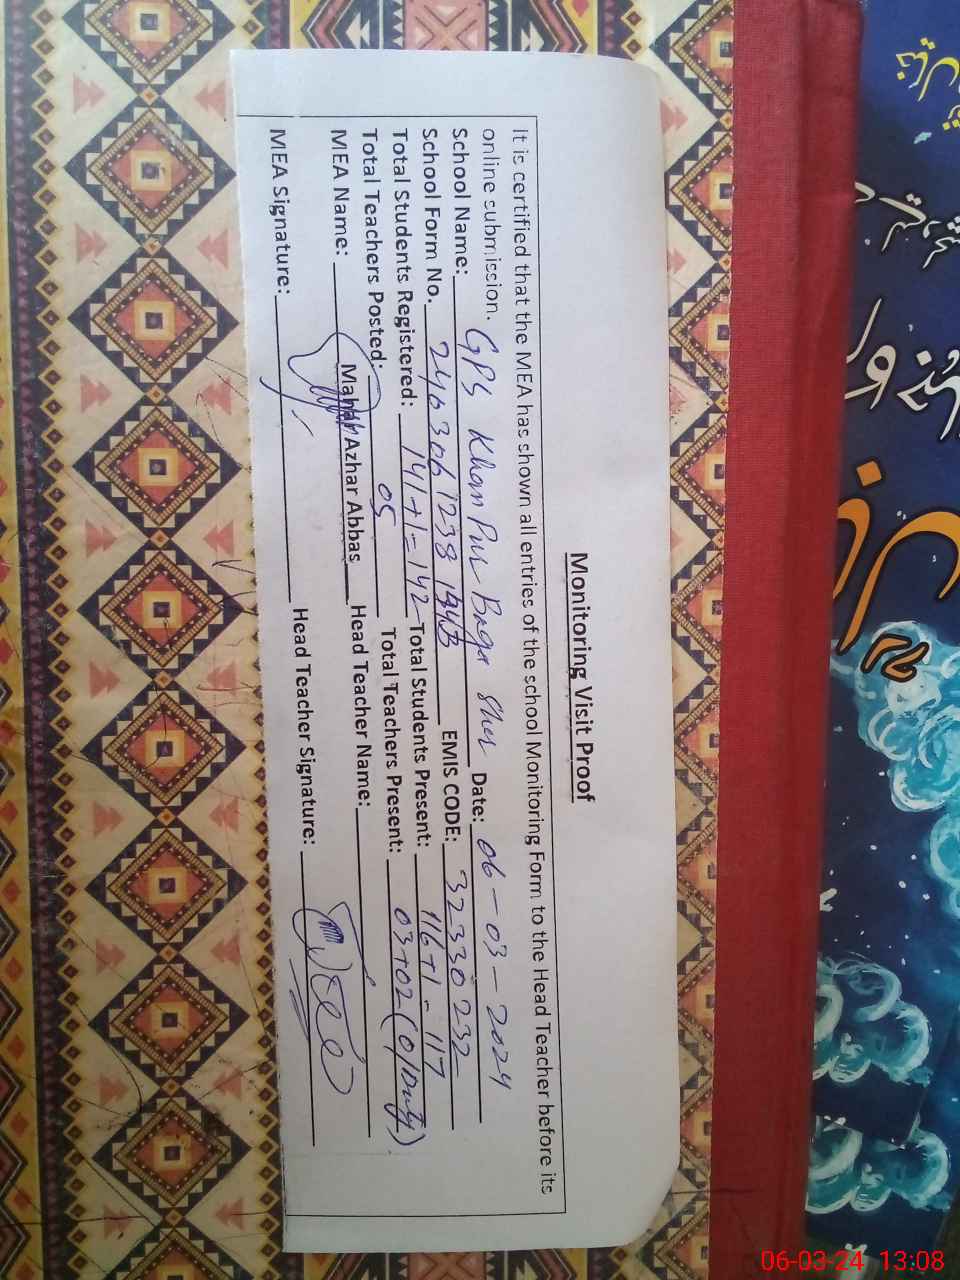 Monitoring Visit Proof
It is certified that the MEA has shown all entries of the school Monitoring Form to the Head Teacher before its
online submission.
School Name: GPS Khan Pur Baga Sher Date: 06-03-2024
School Form No. EMIS CODE: 32330232
Total Students Registered: 141+1=142 Total Students Present: 116+1=117
Total Teachers Posted: 05 Total Teachers Present: 03+02(O/Duty)
MEA Name: Mahar Azhar Abbas Head Teacher Name:
MEA Signature: Head Teacher Signature:
06-03-24 13:08